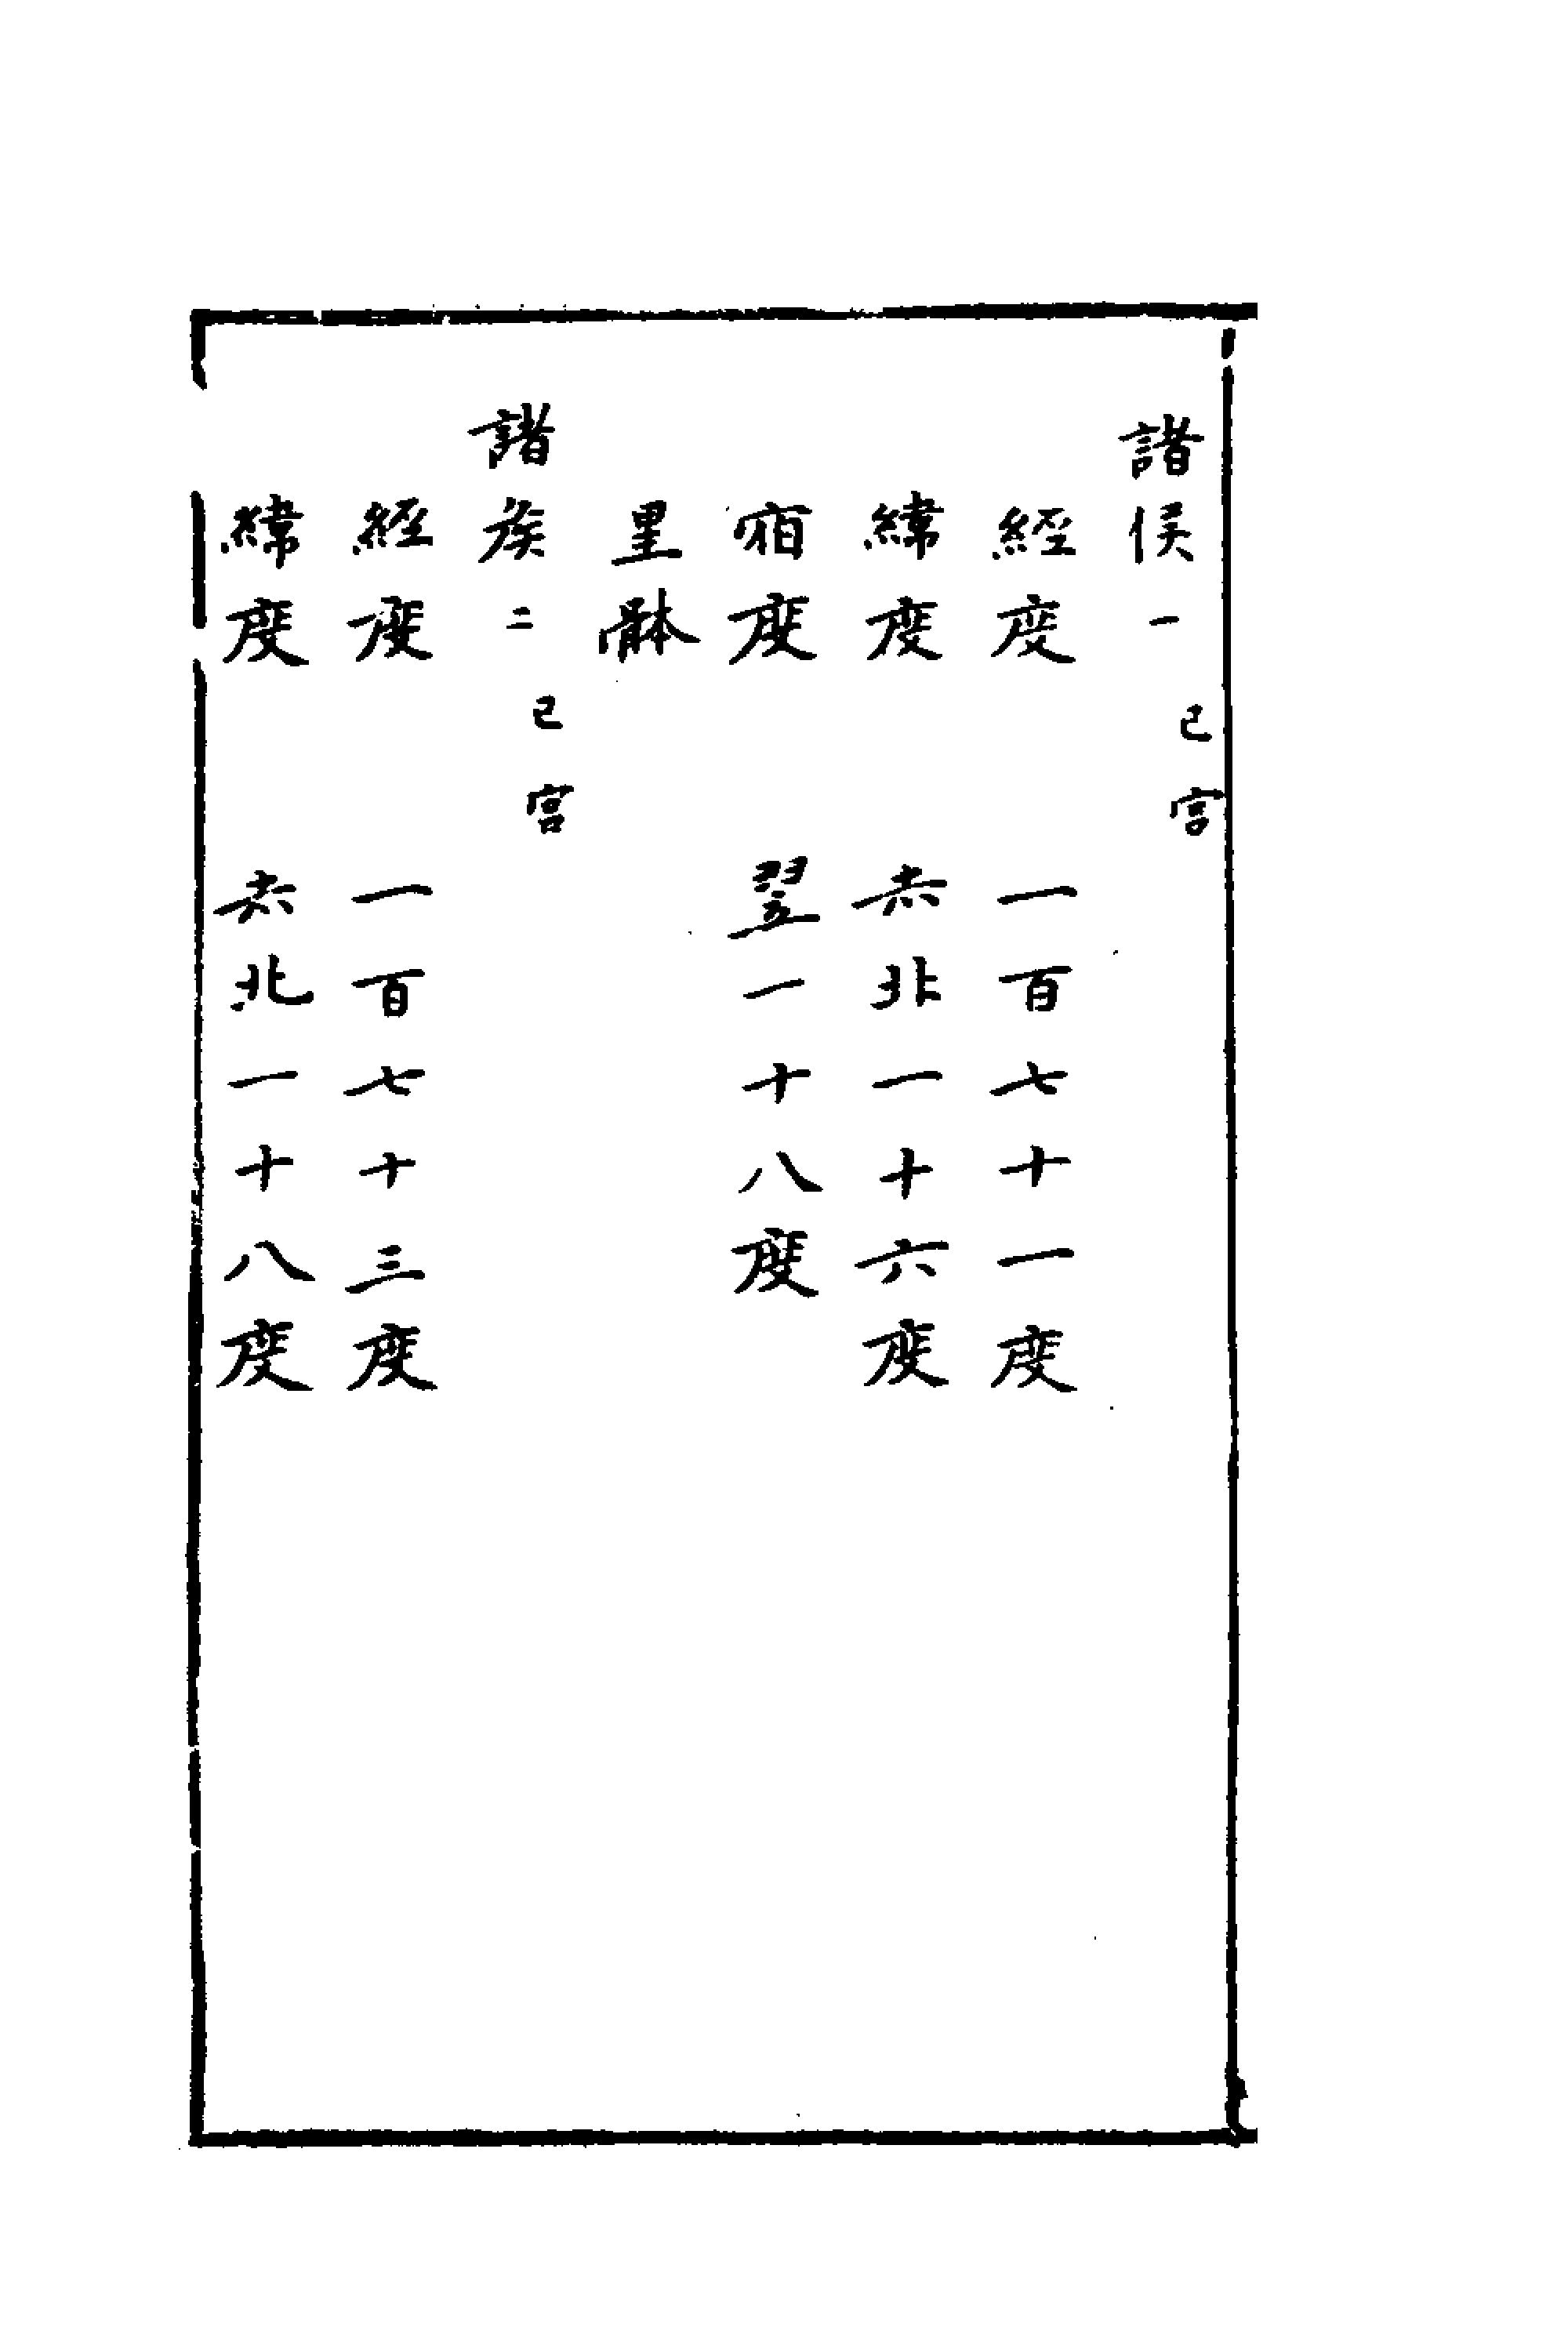 諸侯一 巳宫
經度 一百七十一度
緯度 赤北一十六度
宿度 翌一十八度
星體
諸侯二 巳宫
經度 一百七十三度
緯度 赤北一十八度